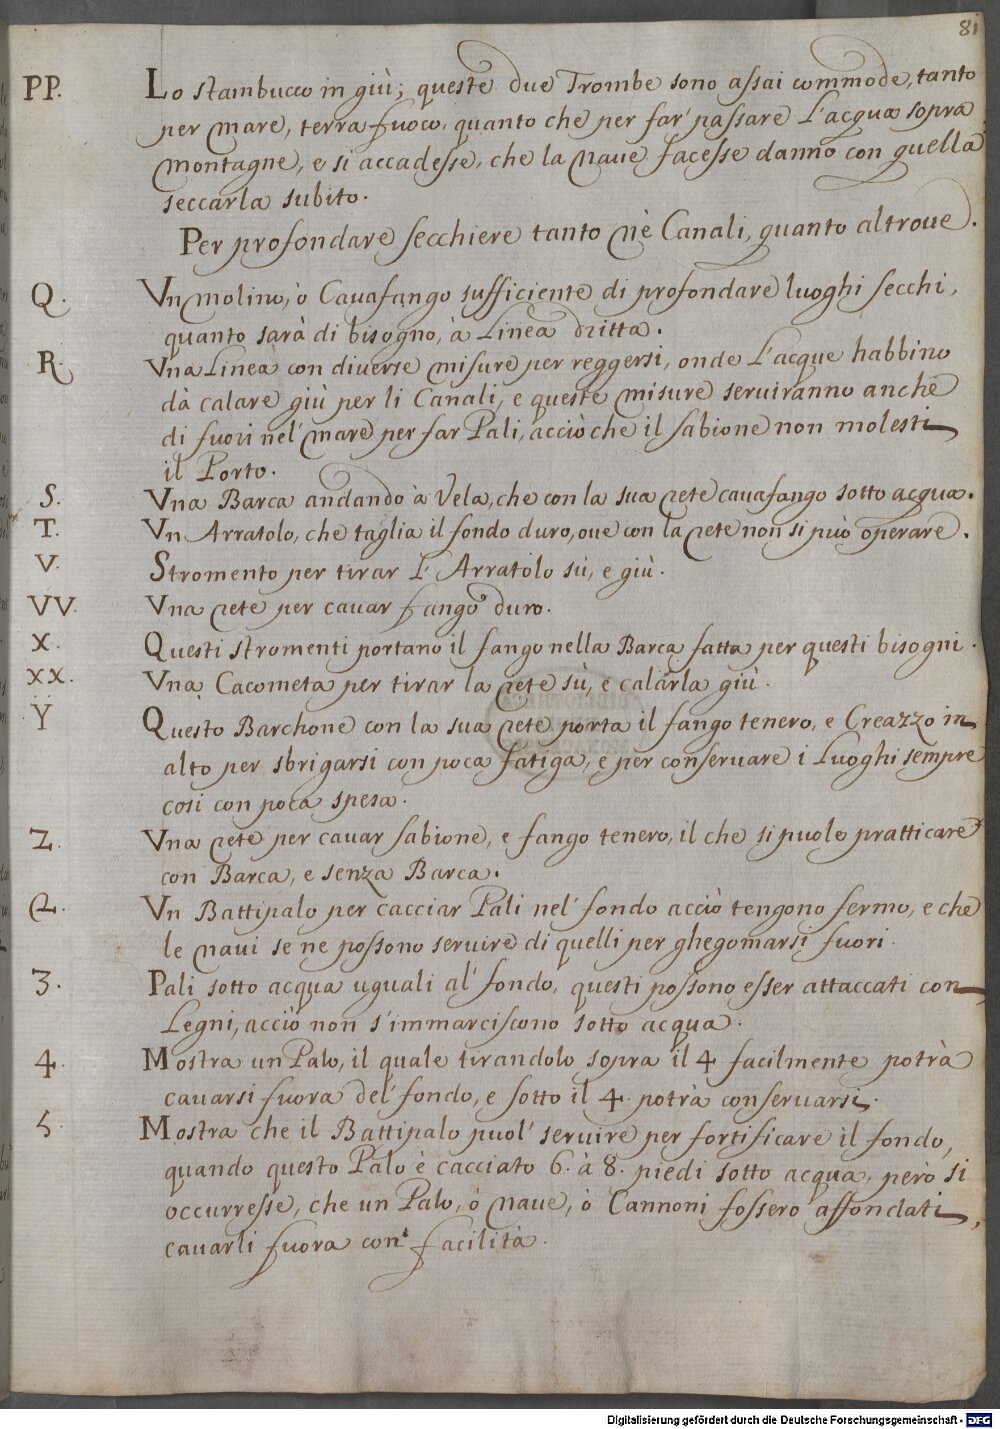 81
PP. Lo stambucco in giù; queste due Trombe sono assai commode, tanto
per mare, terra fuoco, quanto che per far' passare L'acqua sopra
montagne, e si accadesse, che la naue facesse danno con quella
seccarla subito.
Per profondare secchiere tanto nè Canali, quanto altroue.
Q. Vn molino, ò Cauafango sufficiente di profondare luoghi secchi,
quanto sarà di bisogno, à Linea dritta.
R. Vna Linea con diuerse misure per reggersi, onde L'acque habbino
dà calare giù per li Canali, e queste misure seruiranno anche
di fuori nel' mare per far Pali, acciò che il sabione non molesti
il Porto.
S. Vna Barca andando à Vela, che con la sua rete cauafango sotto acqua.
T. Vn Arratolo, che taglia il fondo duro, oue con la rete non si può operare.
V. Stromento per tirar L'Arratolo sù, e giù.
VV. Vna rete per cauar fango duro.
X. Questi stromenti portano il fango nella Barca fatta per questi bisogni.
XX. Vna Cacometa per tirar la rete sù, e calarla giù.
Ÿ Questo Barchone con la sua rete porta il fango tenero, e Creazzo in
alto per sbrigarsi con poca fatiga, e per conseruare i Luoghi sempre
cosi con poca spesa.
Z. Vna rete per cauar sabione, e fango tenero, il che si puole pratticare
con Barca, e senza Barca.
2. Vn Battipalo per cacciar Pali nel' fondo acciò tengono fermo, e che
le naui se ne possono seruire di quelli per ghegomarsi fuori.
3. Pali sotto acqua uguali al' fondo, questi possono esser attaccati con
Legni, acciò non s'immarciscono sotto acqua.
4. Mostra un Palo, il quale tirandolo sopra il 4. facilmente potrà
cauarsi fuora del' fondo, e sotto il 4. potrà conseruarsi.
5. Mostra che il Battipalo puol' seruire per fortificare il fondo,
quando questo Palo è cacciato 6. à 8. piedi sotto acqua, però si
occurresse, che un Palo, ò naue, ò Cannoni fossero affondati,
cauarli fuora con facilità.
Digitalisierung gefördert durch die Deutsche Forschungsgemeinschaft - DFG